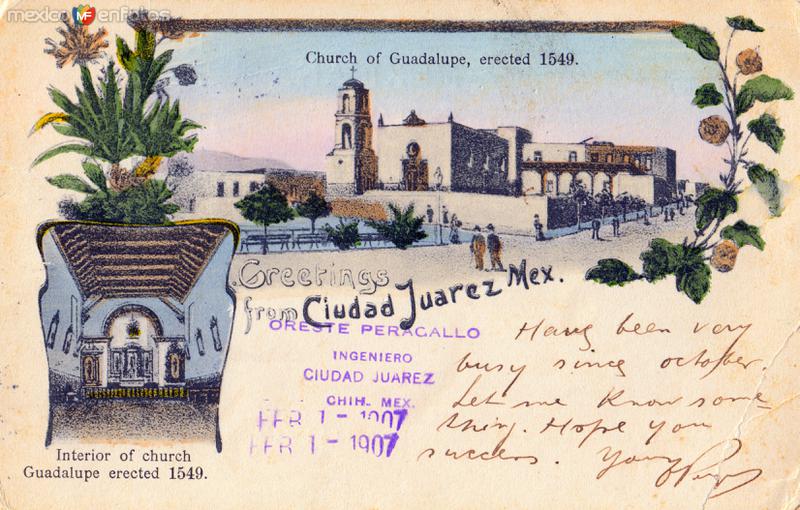 mexicoenfotos
Church of Guadalupe, erected 1549.
Greetings
from Ciudad Juarez Mex.
ORESTE PERAGALLO
INGENIERO
CIUDAD JUAREZ
CHIH. MEX.
FEB 1 - 1907
FEB 1 - 1907
Have been very
busy since october.
Let me know some-
thing. Hope you
success. Yours
Interior of church
Guadalupe erected 1549.